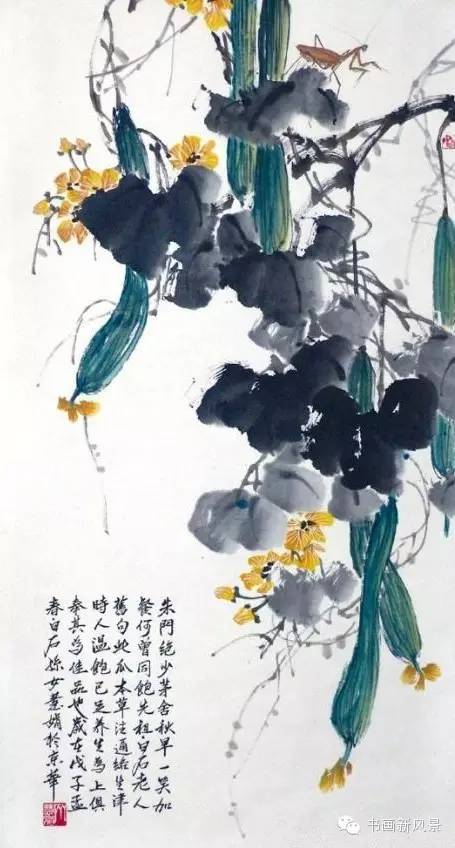 朱門絕少茅舍秋早一笑加
餐何曾同飽先祖白石老人
舊句此瓜本草注通絡生津
時人溫飽已足養生為上俱
泰其為佳品也歲在戊子孟
春白石孫女慧娟於京華
书画新风景